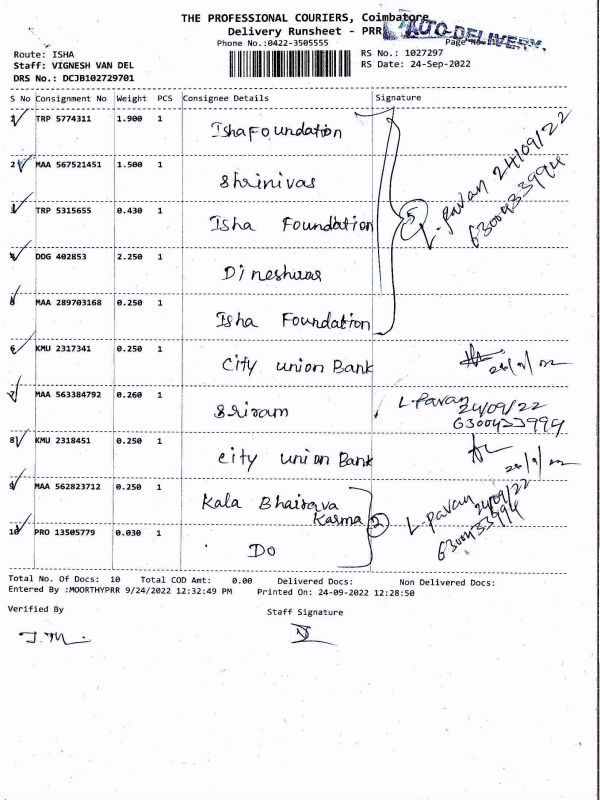 THE PROFESSIONAL COURIERS, Coimbatore
Delivery Runsheet - PRR
AUTO-DELIVERY.
Phone No.:0422-3505555
Page No.
Route: ISHA
RS No.: 1027297
Staff: VIGNESH VAN DEL
RS Date: 24-Sep-2022
DRS No.: DCJB102729701
S No Consignment No Weight PCS Consignee Details Signature
1 TRP 5774311 1.900 1 Isha Foundation
2 MAA 567521451 1.500 1 Shrinivas
3 TRP 5315655 0.430 1 Isha Foundation
5 L. Pavan 24/09/22
6300433994
4 DDG 402853 2.250 1 Dineshwar
5 MAA 289703168 0.250 1 Isha Foundation
6 KMU 2317341 0.250 1 City union Bank
7 MAA 563384792 0.260 1 Sriram L. Pavan
24/09/22
6300433994
8 KMU 2318451 0.250 1 City union Bank
9 MAA 562823712 0.250 1 Kala Bhairava
Karma 2 L. Pavan 24/09/22
6300433994
10 PRO 13505779 0.030 1 Do
Total No. Of Docs: 10 Total COD Amt: 0.00 Delivered Docs: Non Delivered Docs:
Entered By :MOORTHYPRR 9/24/2022 12:32:49 PM Printed On: 24-09-2022 12:28:50
Verified By Staff Signature